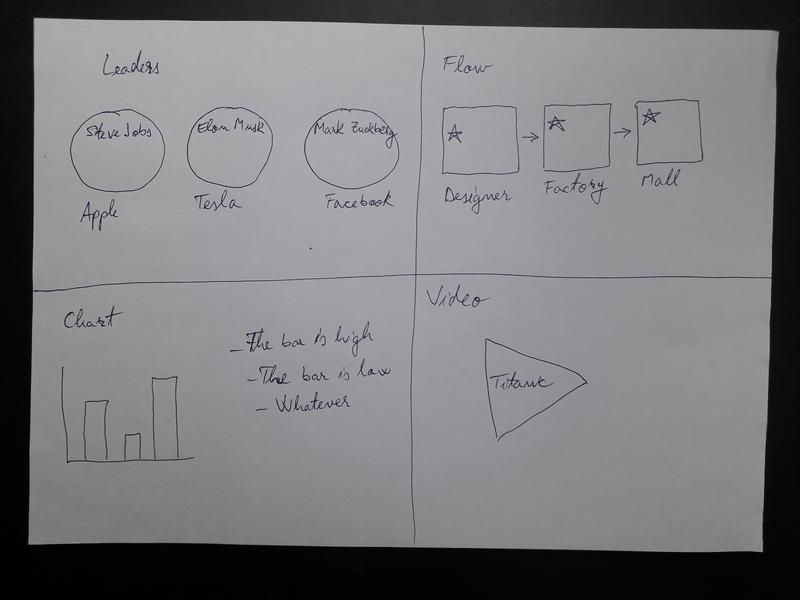 Leaders
Steve Jobs
Elon Musk
Mark Zuckberg
Apple
Tesla
Facebook
Flow
Designer
Factory
Mall
Chart
- The bar is high
- The bar is low
- Whatever
Video
Titanic